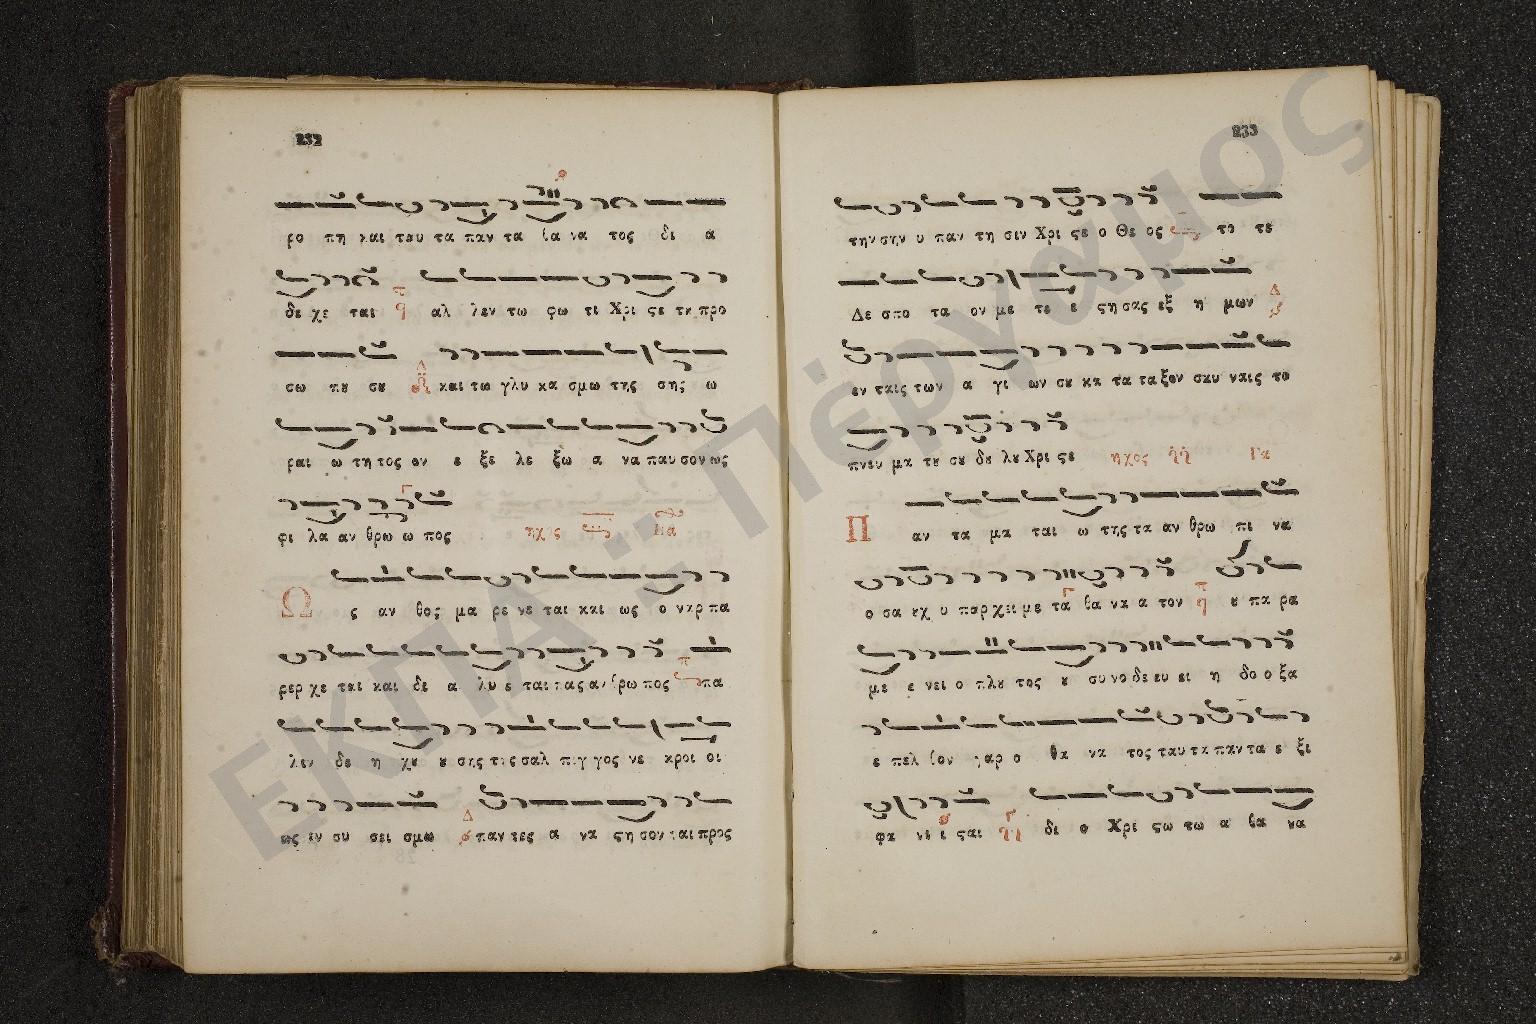 232
ρο πη και του τα παν τα θα να τος δι α
δε χε ται αλ λεν τω φω τι Χρι ϛε τυ προ
σω που σου και τω γλυ κα σμω της σης ω
ραι ω τη τος ον ε ξε λε ξω α να παυ σον ως
φι λα αν θρω ω πος ηχος Πα
Ω ς αν θος μα ρε νε ται και ως ο ναρ πα
ρερ χε ται και δε α λυ ε ται πας αν θρω πος πα
λιν δε η χυ υ σης της σαλ πιγ γος νε κροι οι
ως εν συ σει σμω παν τες α να ϛη σον ται προς
233
την σην υ παν τη σιν Χρι ϛε ο Θε ος το τε
Δε σπο τα ον με τε ε ϛη σας εξ η μων
εν ταις των α γι ων σου κα τα τα ξον σκυ ναις το
πνευ μα τυ σου δυ λυ Χρι ϛε ηχος Γα
Π αν τα μα ται ο της τα αν θρω πι να
ο σα υχ υ παρ χει με τα θα να α τον υ πα ρα
με ε νει ο πλυ τος υ συ νο δε ευ ει η δο ο ξα
ε πελ θον γαρ ο θα να τος ταυ τα παν τα ε ξι
φα νι ι ϛαι δι ο Χρι ϛω τω α θα να
ΕΚΠΑ :: Πέργαμος